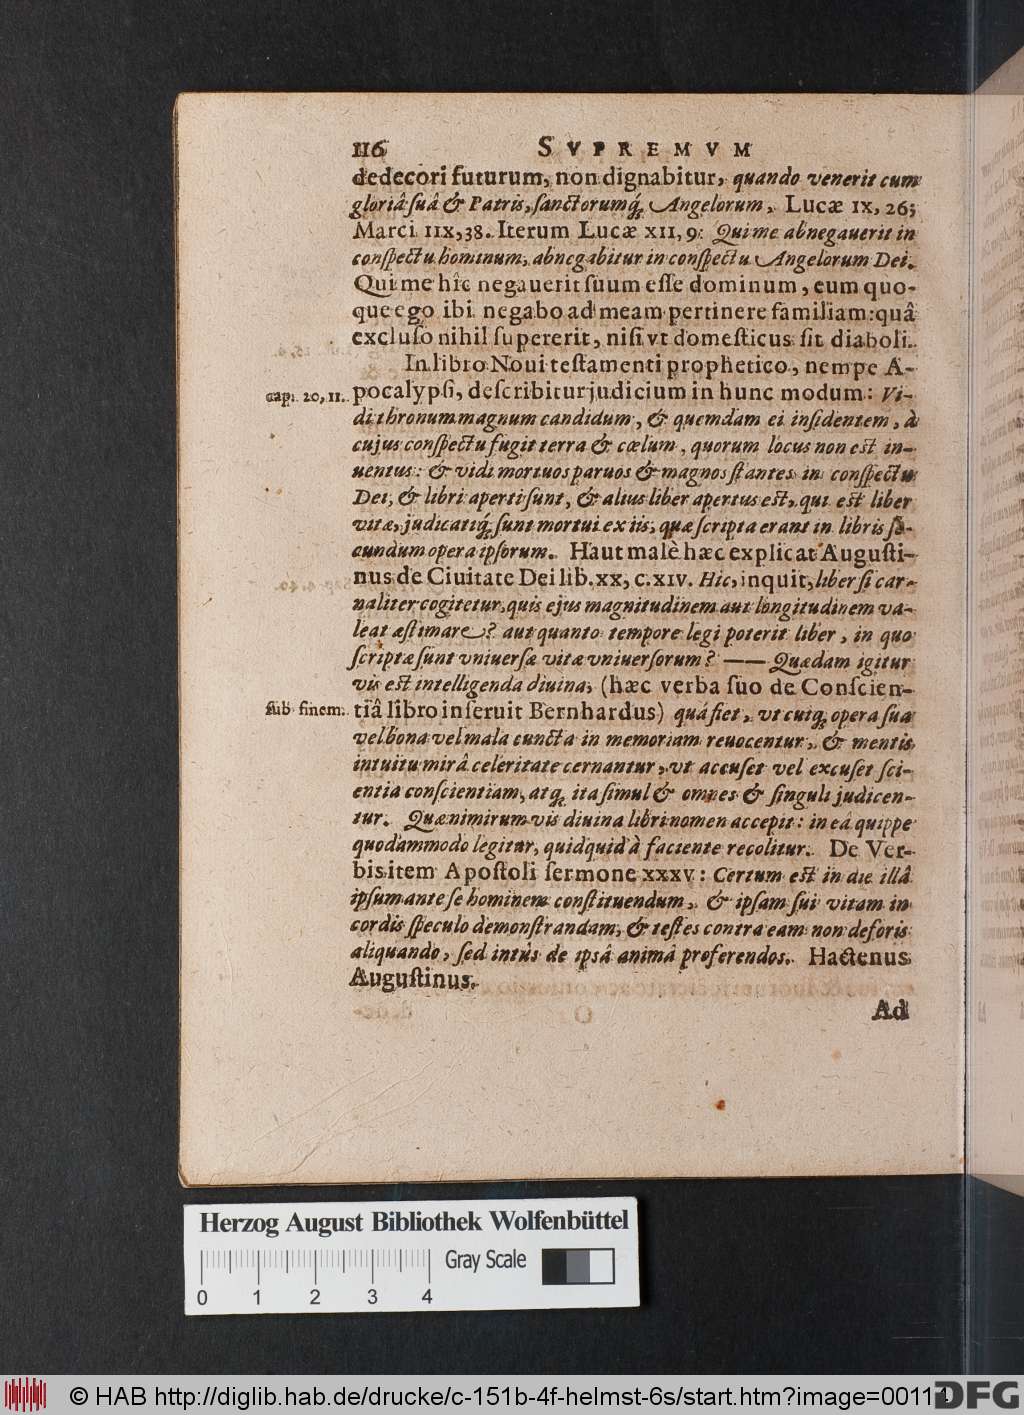 116 SVPREMVM
dedecori futurum, non dignabitur, quando venerit cum
gloriâ ſuâ & Patris, ſanctorumq́; Angelorum, Lucæ IX, 26;
Marci IIX, 38. Iterum Lucæ XII, 9: Qui me abnegauerit in
conſpectu hominum, abnegabitur in conſpectu Angelorum Dei.
Qui me hîc negauerit ſuum eſſe dominum, eum quo-
que ego ibi negabo ad meam pertinere familiam: quâ
excluſo nihil ſupererit, niſi vt domeſticus ſit diaboli.
In libro Noui teſtamenti prophetico, nempe A-
cap. 20, 11. pocalypſi, deſcribitur judicium in hunc modum: Vi-
di thronum magnum candidum, & quemdam ei inſidentem, à
cujus conſpectu fugit terra & cœlum, quorum locus non est in-
uentus: & vidi mortuos paruos & magnos ſtantes in conſpectu
Dei, & libri aperti ſunt, & alius liber apertus est, qui est liber
vitæ, judicatiq́; ſunt mortui ex iis, quæ ſcripta erant in libris ſe-
cundum opera ipſorum. Haut malè hæc explicat Auguſti-
nus de Ciuitate Dei lib. XX, c. XIV. Hic, inquit, liber ſi car-
naliter cogitetur, quis ejus magnitudinem aut longitudinem va-
leat æſtimare? aut quanto tempore legi poterit liber, in quo
ſcriptæ ſunt vniuerſæ vitæ vniuerſorum? —— Quædam igitur
vis est intelligenda diuina, (hæc verba ſuo de Conſcien-
ſub finem. tiâ libro inſeruit Bernhardus) quâ fiet, vt cuiq; opera ſua
vel bona vel mala cuncta in memoriam reuocentur, & mentis
intuitu mirâ celeritate cernantur, vt accuſet vel excuſet ſci-
entia conſcientiam, atq; ita ſimul & omnes & ſinguli judicen-
tur. Quæ nimirum vis diuina libri nomen accepit: in eâ quippe
quodammodo legitur, quidquid à faciente recolitur. De Ver-
bis item Apoſtoli ſermone XXXV: Certum est in die illâ
ipſum ante ſe hominem conſtituendum, & ipſam ſui vitam in
cordis ſpeculo demonſtrandam, & teſtes contra eam non deforis
aliquando, ſed intùs de ipsâ animâ proferendos. Hactenus
Auguſtinus.
Ad
Herzog August Bibliothek Wolfenbüttel
Gray Scale
0 1 2 3 4
© HAB http://diglib.hab.de/drucke/c-151b-4f-helmst-6s/start.htm?image=00114
DFG